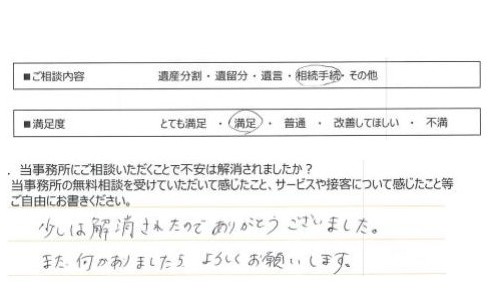 ■ご相談内容　遺産分割・遺留分・遺言・相続手続・その他
■満足度　とても満足　・　満足　・　普通　・　改善してほしい　・　不満
. 当事務所にご相談いただくことで不安は解消されましたか？
当事務所の無料相談を受けていただいて感じたこと、サービスや接客について感じたこと等
ご自由にお書きください。
少しは解消されたのでありがとうございました。
また何かありましたら よろしくお願いします。